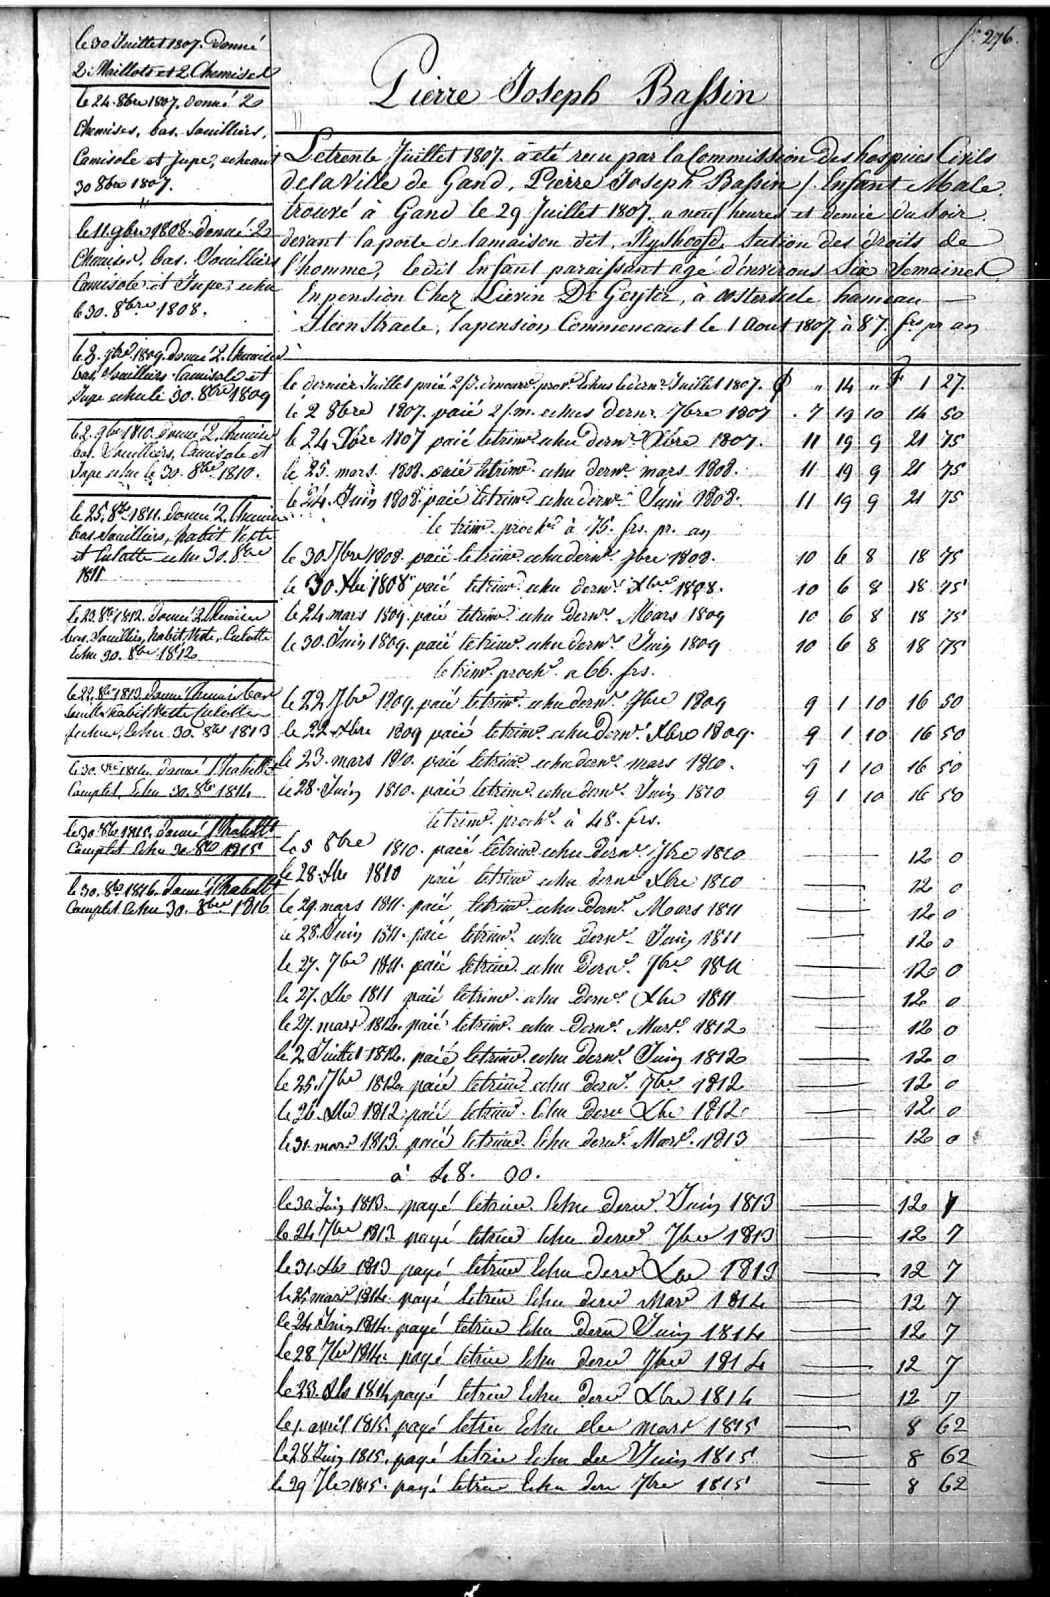 fo. 276.
Pierre Joseph Bassin
le 30 Juillet 1807. donné
2. Maillots et 2 Chemises
le 24. 8bre 1807. donné 2
Chemises, bas. Souilliers,
Camisole et Jupe, echeant
30 8bre 1807.
le 11 9bre 1808. donné 2
Chemises, bas. Souilliers
Camisole et Jupe echu
le 30. 8bre 1808.
le 3. 9bre 1809. donné 2. Chemises
bas, Souilliers Camisole et
Jupe echu le 30. 8bre 1809
le 2. 9bre 1810. donné 2. Chemises
bas. Souilliers, Camisole et
Jupe echu le 30. 8bre 1810.
le 25. 8bre 1811. donné 2. Chemises
bas Souilliers, habit veste
et Culotte echu 30. 8bre
1811
le 23. 8bre 1812. donné 2 Chemises
bas. Souilliers, habit, Veste, Culotte
Echu 30. 8bre 1812
le 22. 8bre 1813. donné Chemises bas
Souilliers habit Veste Culotte
Echu 30. 8bre 1813
le 30. 8bre 1814. donné l'habillt
Complet Echu 30. 8bre 1814
le 30 8bre 1815. donné l'habillt
Complet Echu 30 8bre 1815
le 30. 8bre 1816. donné l'habillt
Complet Echu 30. 8bre 1816
Le trente Juillet 1807. a été recu par la Commission des hospices Civils
de la Ville de Gand, Pierre Joseph Bassin / Enfant Male
trouvé à Gand le 29 Juillet 1807. a neuf heures et demie du Soir
devant la porte de la maison dit, Ryshoofd, Section des droits de
l'homme, ledit Enfant paraissant agé d'environs Six Semaines
En pension Chez Lievin De Geyter, à oosterseele hameau —
Steen Straete, la pension Commencant le 1 Aout 1807 à 87. frs pr an
le dernier Juillet paié 2/s. denourre. prov. Echus le dern. Juillet 1807. " 14 " 1 27.
le 2 8bre 1807. paié 2/m. echus dernr. 7bre 1807 7 19 10 14 50
le 24 Xbre 1807 paié le trimr. echu dernr. Xbre 1807. 11 19 9 21 75
le 25 mars. 1808. paié le trimr. echu dernr. mars 1808. 11 19 9 21 75
le 24. Juin 1808. paié le trimr. echu dernr. Juin 1808. 11 19 9 21 75
le trimr. prochr à 75. frs. pr. an
le 30 7bre 1808. paié le trimr. echu dernr. 7bre 1808. 10 6 8 18 75
le 30 Xbre 1808 paié le trimr. echu dernr. Xbre 1808. 10 6 8 18 75
le 24 mars 1809. paié le trimr. echu dernr. Mars 1809 10 6 8 18 75
le 30. Juin 1809. paié le trimr. echu dernr. Juin 1809 10 6 8 18 75
le trimr. prochr. a 66. frs.
le 22 7bre 1809. paié le trimr. echu dernr. 7bre 1809 9 1 10 16 50
le 22 Xbre 1809 paié le trimr. echu dernr. Xbre 1809. 9 1 10 16 50
le 23. mars 1810. paié le trimr. echu dernr. mars 1810. 9 1 10 16 50
le 28. Juin 1810. paié le trimr. echu dernr. Juin 1810 9 1 10 16 50
le trimr. prochr. à 48. frs.
Le 5 8bre 1810. paié le trimr. echu dernr. 7bre 1810 — 12 0
le 28 Xbre 1810 paié le trimr. echu dernr Xbre 1810 — 12 0
le 29. mars 1811. paié le trimr. echu dernr. Mars 1811 — 12 0
le 28. Juin 1811. paié le trimr. echu dernr. Juin 1811 — 12 0
le 27. 7bre 1811. paié le trimr. echu dernr. 7bre 1811 — 12 0
le 27. Xbre 1811 paié le trimr. echu dernr. Xbre 1811 — 12 0
le 27. mars 1812. paié le trimr. echu dernr. Mars. 1812 — 12 0
le 2 Juillet 1812. paié le trimr. echu dernr. Juin 1812 — 12 0
le 25. 7bre 1812 paié le trimr. echu dernr. 7bre 1812 — 12 0
le 26. Xbre 1812 paié le trimr. Echu dernr Xbre 1812. — 12 0
le 31. mars 1813. paié le trimr. Echu dernr. Mars. 1813 — 12 0
à 48. 00.
le 30 Juin 1813. payé le trimr. Echu dernr Juin 1813 — 12 7
le 24 7bre 1813 payé le trimr Echu dernr 7bre 1813 — 12 7
le 31. Xbre 1813 payé le trimr Echu dernr Xbre 1813 — 12 7
le 25 mars 1814. payé le trimr Echu dernr Mars 1814 — 12 7
le 24 Juin 1814. payé le trimr Echu dernr Juin 1814 — 12 7
le 28 7bre 1814. payé le trimr Echu dernr 7bre 1814 — 12 7
le 23. Xbre 1814 payé le trimr Echu dernr Xbre 1814 — 12 7
le 1. avril 1815. payé le trim Echu der mars 1815 — 8 62
le 28 Juin 1815. payé le trim Echu der Juin 1815 — 8 62
le 29 7bre 1815. payé le trim Echu der 7bre 1815 — 8 62